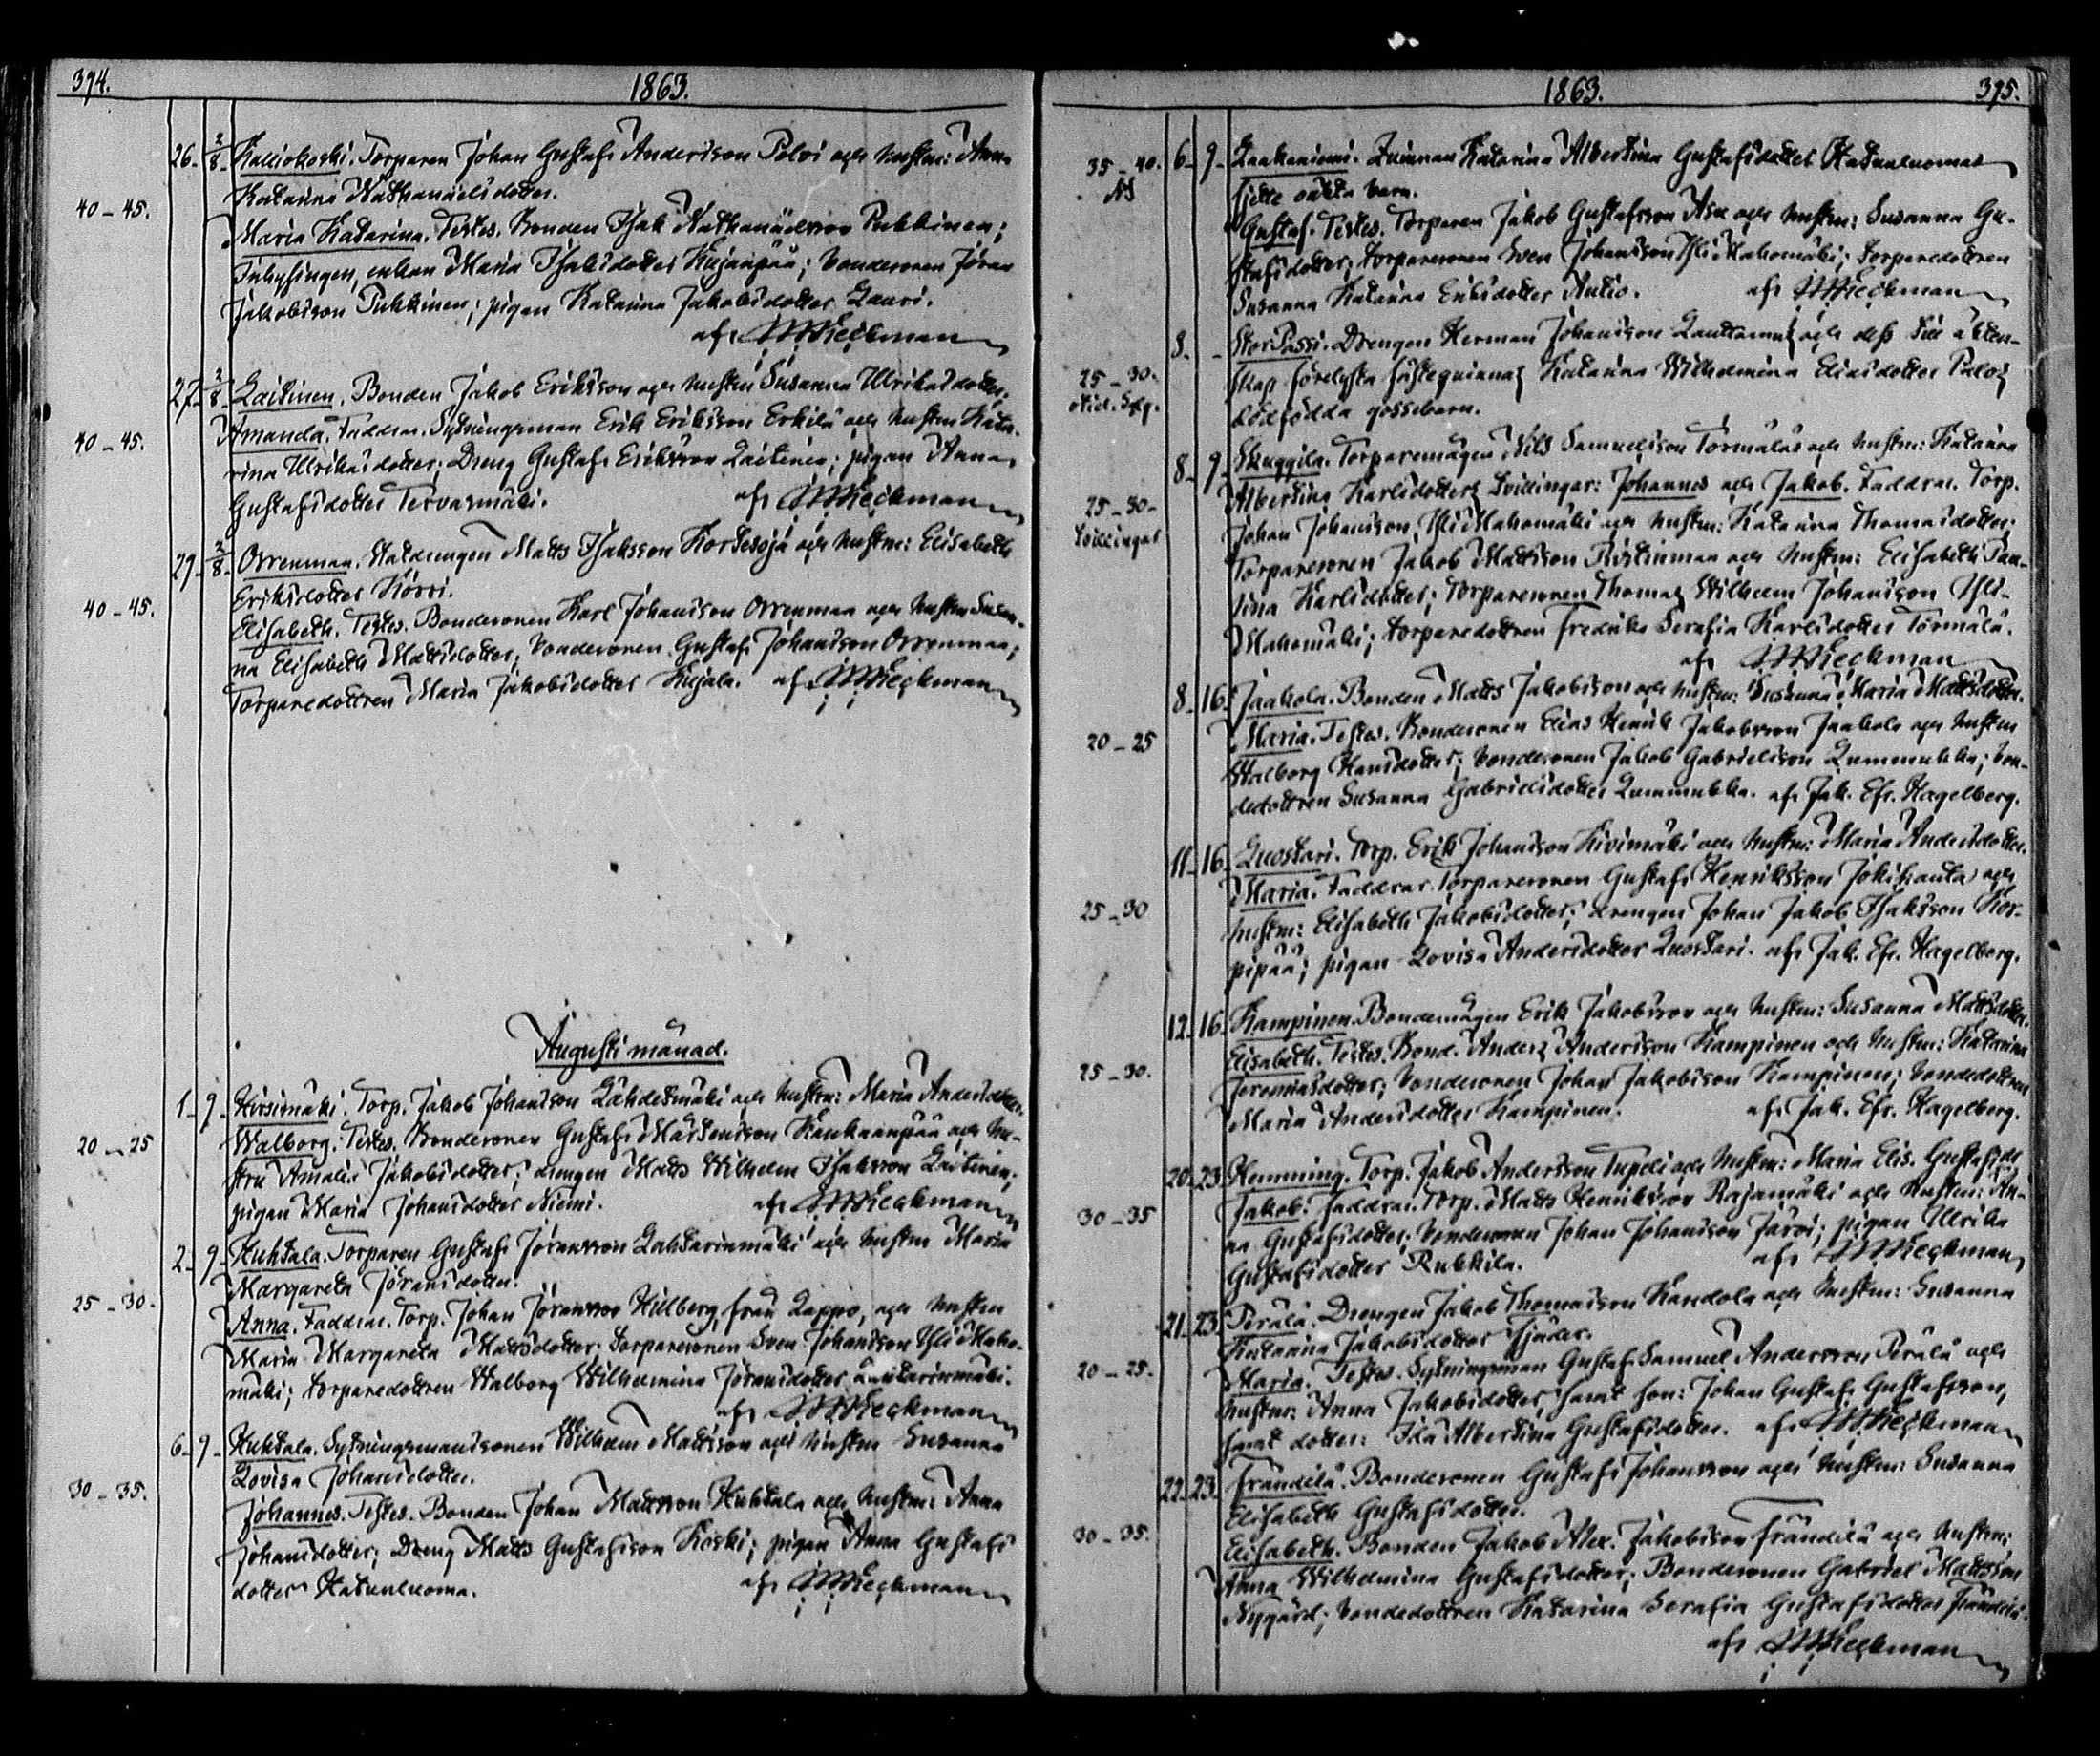 394. 1863.
26. 2/8. Kalliokoski. Torparen Johan Gustaf Andersson Polvi och hustru: Anna
Katarina Nathanaelsdotter.
40-45.
Maria Katarina. Testes. Bonden Isak Nathanaelsson Pukkinen;
Inhysingen, enkan Maria Isaksdotter Kujanpää; bondesonen Jöran
Jakobsson Pukkinen; pigan Katarina Jakobsdotter Lauri.
af Wieckman
27. 2/8. Laitinen. Bonden Jakob Eriksson och hustru Susanna Ulrika dotter.
40-45.
Amanda. Faddrar. Sytningsman Erik Eriksson Erkilä och hustru Kata-
rina Ulrika dotter; Dreng Gustaf Eriksson Laitinen; pigan Anna
Gustafsdotter Tervasmäki. af Wieckman
29. 2/8. Orrenmaa. Statdrengen Matts Isaksson Kortesoja och hustru: Elisabeth
Eriksdotter Körri.
40-45.
Elisabeth. Testes. Bondesonen Karl Johansson Orrenmaa och hustru Susan-
na Elisabeth Mattsdotter; bondesonen Gustaf Johansson Orrenmaa;
Torparedottren Maria Jakobsdotter Kujala. af Wieckman
Augusti månad.
1. 9. Hirsimäki. Torp. Jakob Johansson Lähdesmäki och hustru: Maria Andersdotter.
20-25
Walborg. Testes. Bondesonen Gustaf Mårtensson Kaukaanpää och hu-
stru Amalia Jakobsdotter; drengen Matts Wilhelm Isaksson Laitinen;
pigan Maria Johansdotter Niemi. af Wieckman
2. 9. Huhtala. Torparen Gustaf Jöransson Lantarinmäki och hustru Maria
Margareta Jöransdotter.
25-30.
Anna. Faddrar. Torp. Johan Jöransson Hillberg, från Lappo, och hustru
Maria Margareta Mattsdotter; torparesonen Sven Johansson Yli Maho-
mäki; torparedottren Walborg Wilhelmina Jöransdotter Lantarinmäki.
af Wieckman
6. 9. Huhtala. Sytningsmanssonen Wilhelm Mattsson och hustru Susanna
Lovisa Johansdotter.
30-35.
Johannes. Testes. Bonden Johan Mattsson Huhtala och hustru: Anna
Johansdotter; Dreng Matts Gustafsson Koski; pigan Anna Gustafs
dotter Katunluoma. af Wieckman
1863. 395.
35-40. 6. 9. Laakaniemi. Qvinnan Katarina Albertina Gustafsdotter Katunluomas
fjette oäkta barn.
Gustaf. Testes. Torparen Jakob Gustafsson Asu och hustru: Susanna Gu-
stafsdotter; torparesonen Sven Johansson Yli Mahomäki; torparedottren
Susanna Katarina Eriksdotter Autio. af Wieckman
8. - Stor Passi. Drengen Herman Johansson och dess till äkten-
25-30.
skap förelysta fästeqvinna Katarina Wilhelmina Eliasdotter Palos
dödfödda gossebarn.
8. 9. Skuggila. Torparemågen Nils Samuelsson Törmäläs och hustru: Katarina
25-30-
Tvillingar
Albertina Karlsdotters tvillingar: Johannes och Jakob. Faddrar. Torp.
Johan Johansson Yli Mahomäki och hustru: Katarina Thomasdotter;
Torparesonen Jakob Mattsson Ristinmaa och hustru: Elisabeth Pau-
lina Karlsdotter; torparesonen Thomas Wilhelm Johansson Yli-
Mahomäki; torparedottren Fredrika Serafia Karlsdotter Törmälä.
af Wieckman
8. 16. Jaakola. Bonden Matts Jakobsson och hustru: Susanna Maria Mattsdotter.
20-25
Maria. Testes. Bondesonen Elias Henrik Jakobsson Jaakola och hustru
Walborg Hansdotter; bondesonen Jakob Gabrielsson Lummukka; bon-
dedottren Susanna Gabrielsdotter Lummukka. af Jak. Efr. Hagelberg.
11. 16. Luostari. Torp. Erik Johansson Kivimäki och hustru: Maria Andersdotter.
25-30
Maria. Faddrar. Torparesonen Gustaf Henriksson Jokihanta och
hustru: Elisabeth Jakobsdotter; drengen Johan Jakob Isaksson Kor-
pipää; pigan Lovisa Andersdotter Luostari. af Jak. Efr. Hagelberg.
12. 16. Kampinen. Bondemågen Erik Jakobsson och hustru: Susanna Mattsdotter.
25-30.
Elisabeth. Testes. Bond. Anders Andersson Kampinen och hustru: Katarina
Jeremiasdotter; bondesonen Johan Jakobsson Kampinen; bondedottren
Maria Andersdotter Kampinen. af Jak. Efr. Hagelberg.
20. 23. Hemming. Torp. Jakob Andersson Tupeli och hustru: Maria Elis. Gustafsdr
30-35
Jakob. Faddrar. Torp. Matts Henriksson Rajamäki och hustru: An-
na Gustafsdotter; bondesonen Johan Johansson Järvi; pigan Ulrika
Gustafsdotter Rukkila. af Wieckman
21. 23. Perälä. Drengen Jakob Thomasson Kandola och hustru: Susanna
Katarina Jakobsdotter Fjäder.
20-25.
Maria. Testes. Sytningsman Gustaf Samuel Andersson Perälä och
hustru: Anna Jakobsdotter, samt son: Johan Gustaf Gustafsson,
samt dotter: Ida Albertina Gustafsdotter. af Wieckman
22. 23. Frändilä. Bondesonen Gustaf Johansson och hustru: Susanna
Elisabeth Gustafsdotter.
30-35.
Elisabeth. Bonden Jakob Alex. Jakobsson Frändilä och hustru:
Anna Wilhelmina Gustafsdotter; Bondesonen Gabriel Mattsson
Nygård; bondedottren Katarina Serafia Gustafsdotter Frändilä.
af Wieckman